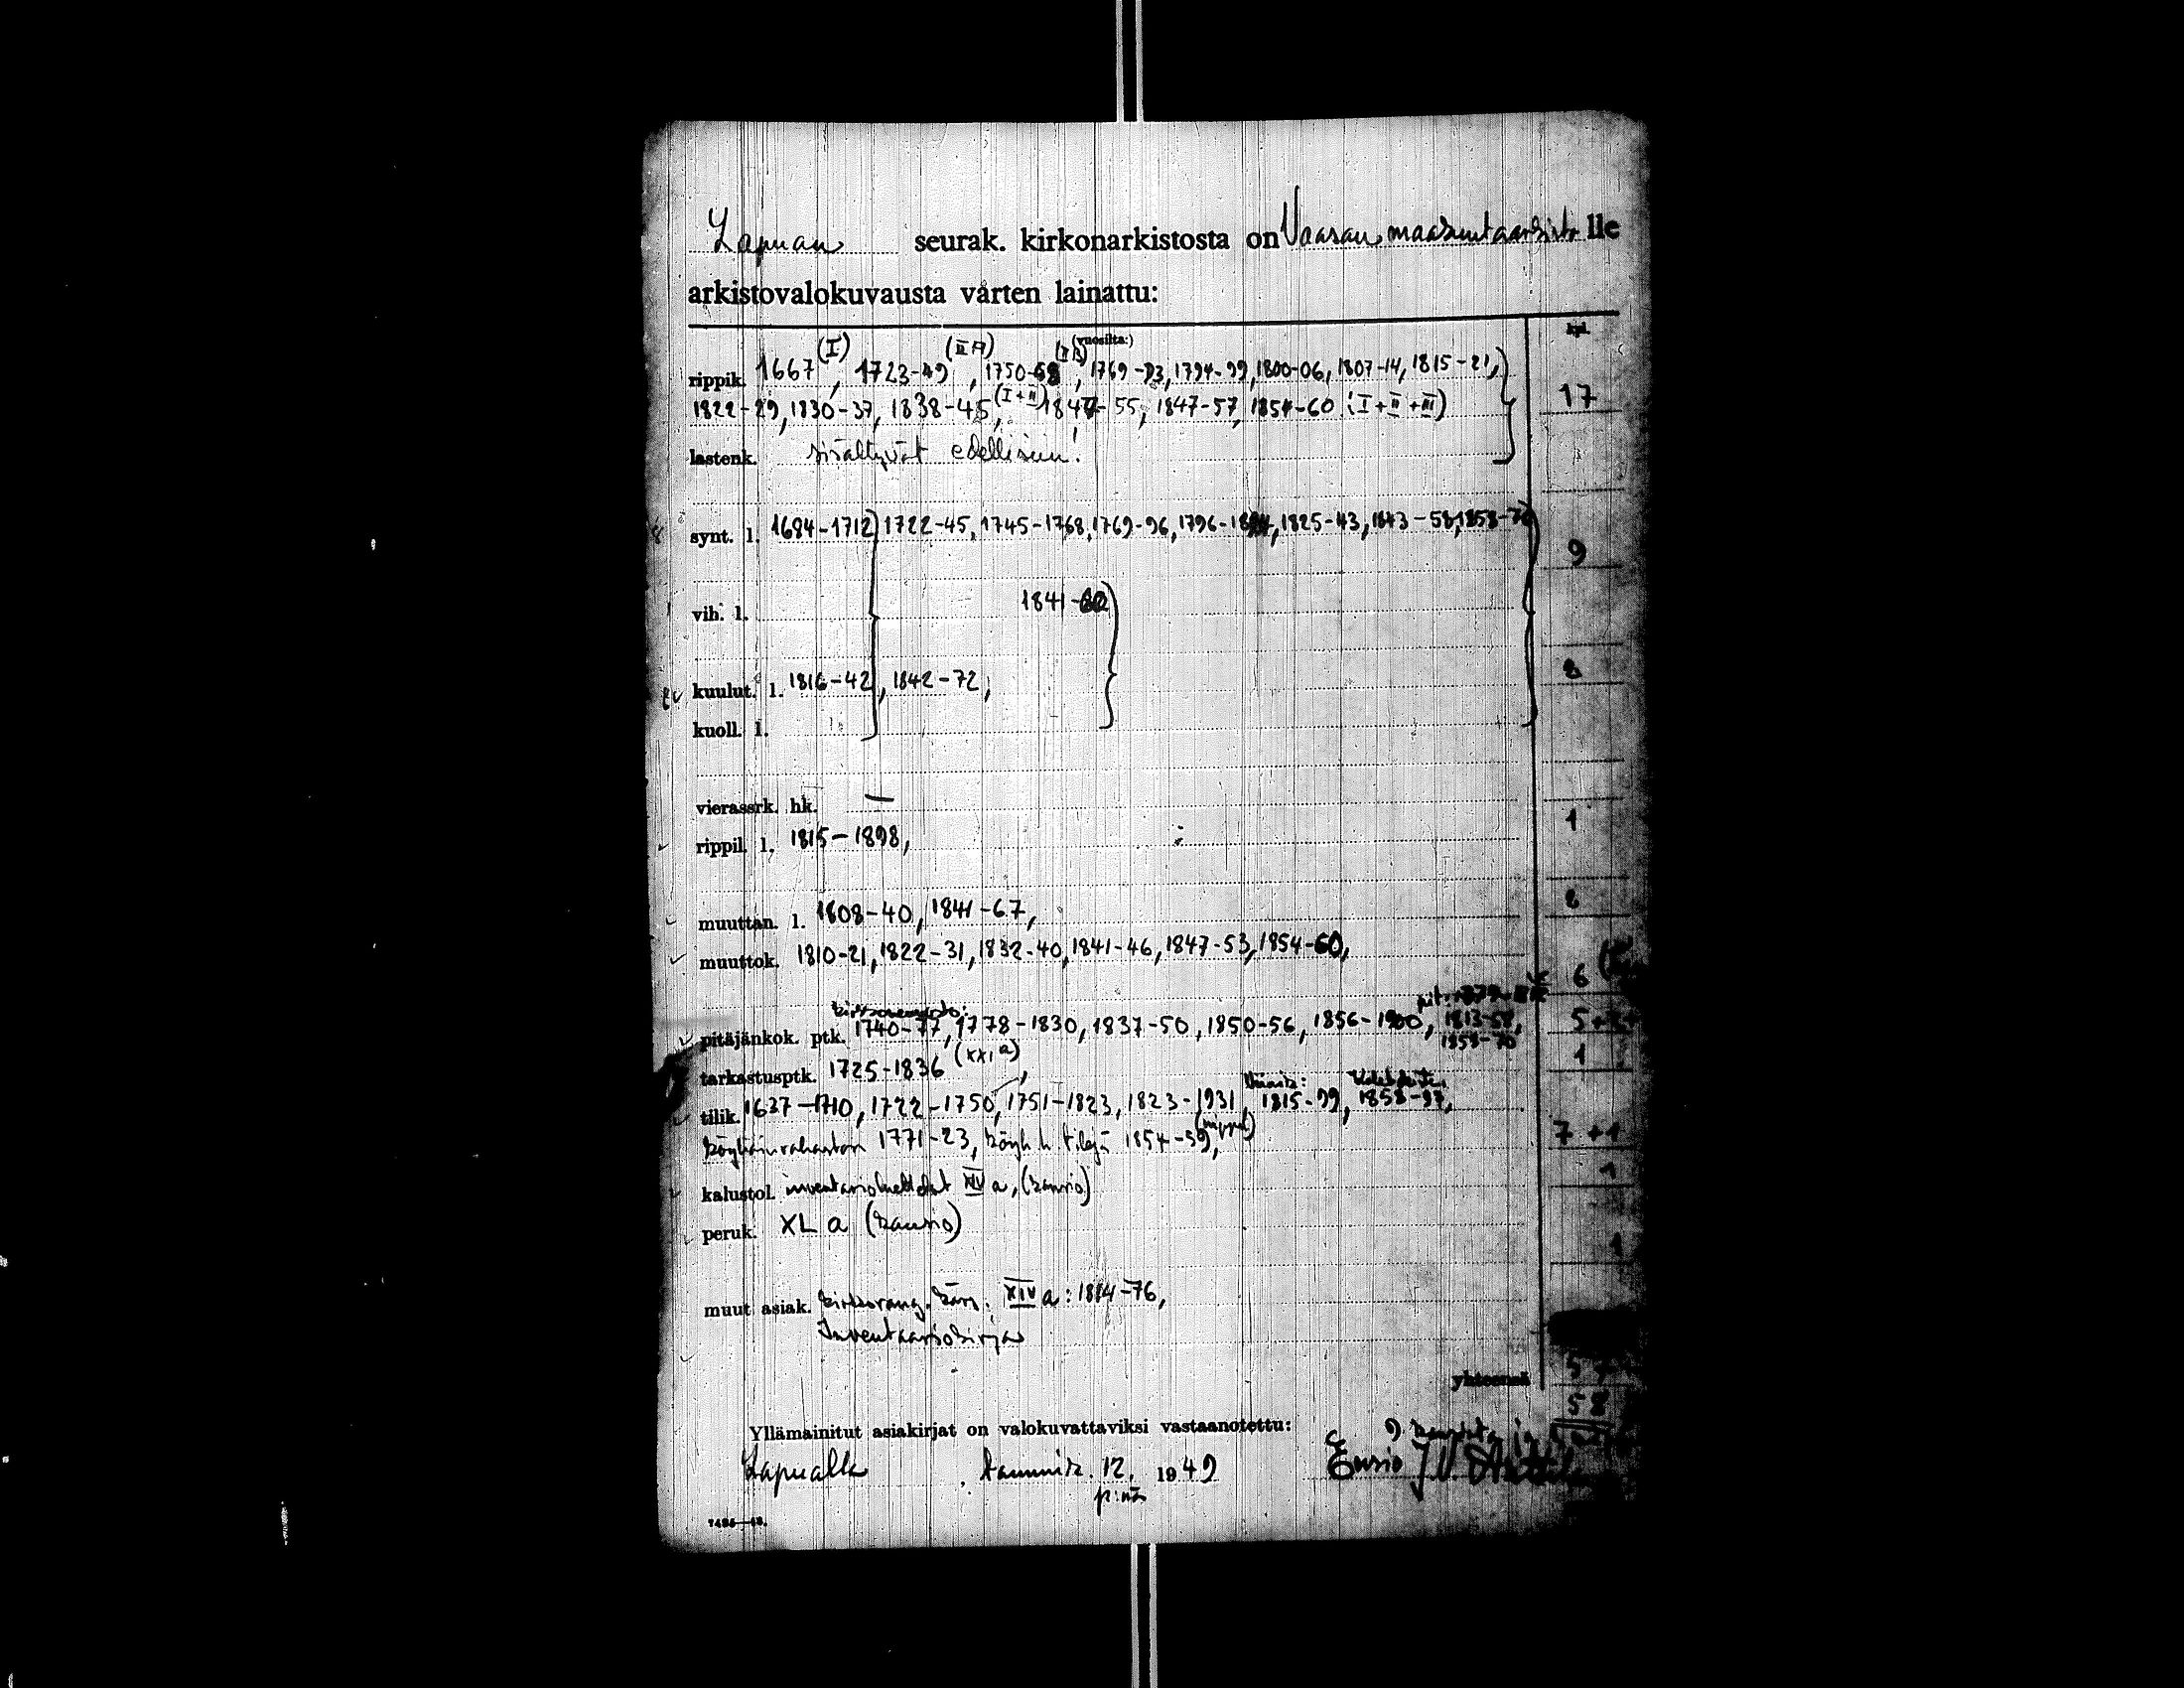 Lapuan seurak. kirkonarkistosta on Vaasan maakuntaarkisto lle
arkistovalokuvausta varten lainattu:
(vuosilta:) kpl.
(I) (II A) (II B)
rippik. 1667, 1723-49, 1750-68, 1769-93, 1794-99, 1800-06, 1807-14, 1815-21,
1822-29, 1830-37, 1838-45, (I+II) 1847-55, 1847-57, 1854-60 (I+II+III) 17
lastenk. sisältyvät edellisiin!
synt. l. 1684-1712, 1722-45, 1745-1768, 1769-96, 1796-, 1825-43, 1843-58, 1858-
9
vih. l. 1841-
kuulut. l. 1816-42, 1842-72,
kuoll. l.
vierassrk. hk. —
rippil. l. 1815-1898, 1
muuttan. l. 1808-40, 1841-67,
muuttok. 1810-21, 1822-31, 1832-40, 1841-46, 1847-53, 1854-60, 6
pitäjänkok. ptk. 1740-77, 1778-1830, 1837-50, 1850-56, 1856-1900, 1813-58,
1858-70
tarkastusptk. 1725-1836 (XXI a), 1
tilik. 1637-1710, 1722-1750, 1751-1823, 1823-1931, 1815-99, 1858-97,
1771-23, 1854-59, 7+1
kalustol. XIV a, (kansio) 1
peruk. XL a (kansio) 1
muut asiak. XIV a: 1814-76,
Inventaariokirja
yhteensä
58
Yllämainitut asiakirjat on valokuvattaviksi vastaanotettu:
Lapualla, tammik. 12. p:nä 1949